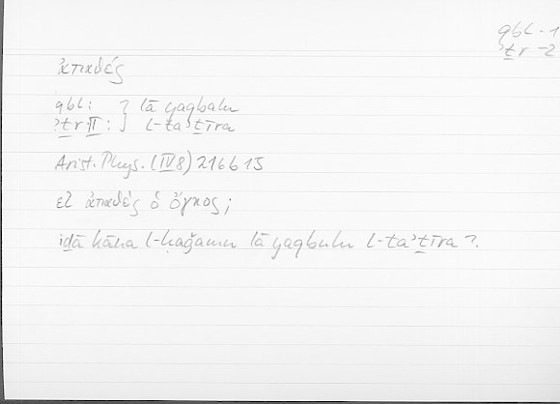 qbl -1
ʾṯr -2
ἀπαθές
qbl : } lā yaqbalu
ʾṯr II : } l-taʾṯīra
Arist. Phys. (IV 8) 216 b 15
εἰ ἀπαθὲς ὁ ὄγκος;
iḏā kāna l-ḥaǧamu lā yaqbulu l-taʾṯīra ?.